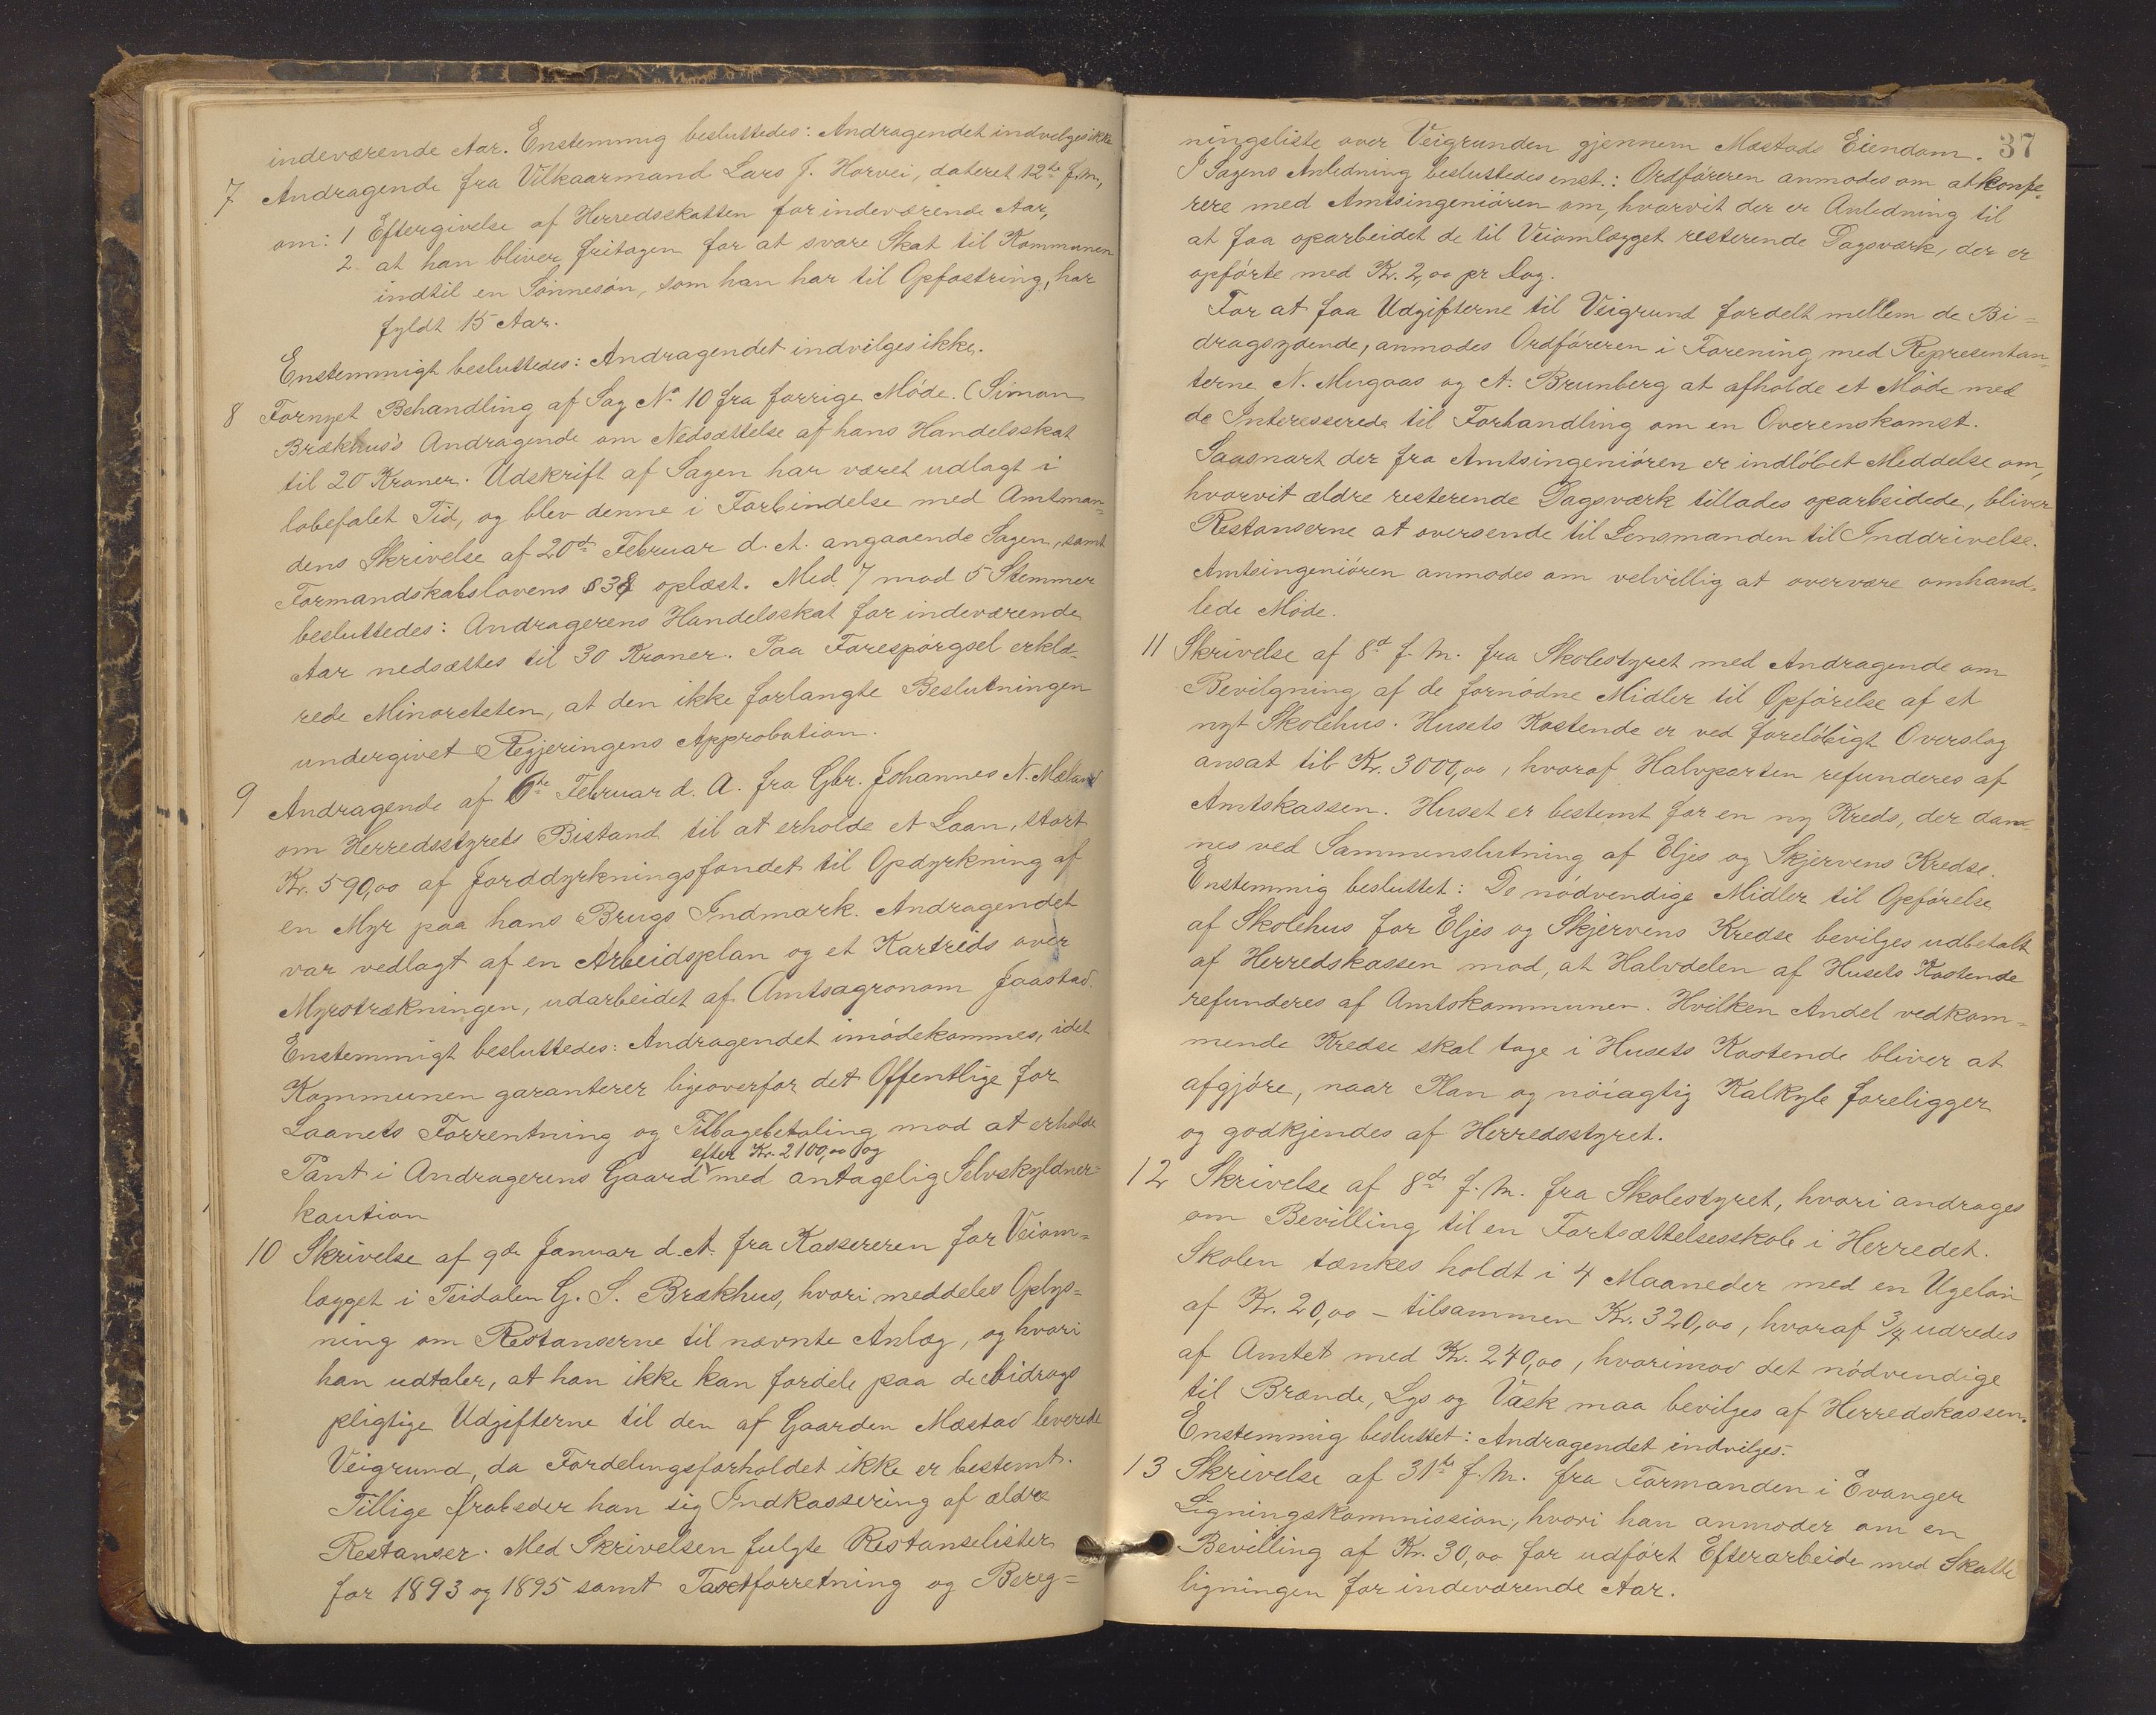 indeværende Aar. Enstemmig besluttedes: Andragendet indvelges ikke
7 Andragende fra Vilkaarmand Lars J. Horvei, dateret 12te f. m.,
om: 1 Eftergivelse af Herredsskatten for indeværende Aar,
2. at han bliver fritagen for at svare Skat til Kommunen
indtil en Sønnesøn, som han har til Opfostring, har
fyldt 15 Aar.
Enstemmigt besluttedes: Andragendet indvilges ikke.
8 Fornyet Behandling af Sag No 10 fra forrige Møde. (Simon
Brækhus's Andragende om Nedsættelse af hans Handelsskat
til 20 Kroner. Udskrift af Sagen har været udlagt i
lobefalet Tid, og blev denne i Forbindelse med Amtman=
dens Skrivelse af 20de Februar d. A. angaaende Sagen, samt
Formandskabslovens § 38 oplæst. Med 7 mod 5 Stemmer
besluttedes: Andragerens Handelsskat for indeværende
Aar nedsættes til 30 Kroner. Paa Forespørgsel erklæ-
rede Minoriteten, at den ikke forlangte Beslutningen
undergivet Regjeringens Approbation.
9 Andragende af 6te Februar d. A. fra Gbr. Johannes N. Mæland
om Herredsstyrets Bistand til at erholde et Laan, stort
Kr. 590,00 af Jorddyrkningsfondet til Opdyrkning af
en Myr paa hans Brugs Indmark. Andragendet
var vedlagt af en Arbeidsplan og et Kartrids over
Myrstrækningen, udarbeidet af Amtsagronom Jaastad.
Enstemmigt besluttedes: Andragendet imødekommes, idet
Kommunen garanterer ligeoverfor det Offentlige for
Laanets Forrentning og Tilbagebetaling mod at erholde
efter Kr. 2100,00 og
Pant i Andragerens Gaard med antagelig Selvskyldner=
kaution
10 Skrivelse af 9de Januar d. A. fra Kassereren for Veiom=
lægget i Teidalen G. S. Brækhus, hvori meddeles Oplys=
ning om Restanserne til nævnte Anlæg, og hvori
han udtaler, at han ikke kan fordele paa de bidrags
pligtige Udgifterne til den af Gaarden Mæstad leverede
Veigrund, da Fordelingsforholdet ikke er bestemt.
Tillige frabeder han sig Indkassering af ældre
Restanser. Med Skrivelsen fulgte Restanselister
for 1893 og 1895 samt Taxtforretning og Bereg=
37
ningsliste over Veigrunden gjennem Mæstads Eiendom.
I Sagens Anledning besluttedes enst.: Ordføreren anmodes om at konfe-
rere med Amtsingeniøren om, hvorvit der er Anledning til
at faa oparbeidet de til Veiomlægget resterende Dagsværk, der er
opførte med Kr. 2,00 pr Dag.
For at faa Udgifterne til Veigrund fordelt mellem de Bi=
dragsydende, anmodes Ordføreren i Forening med Representan=
terne N. Mugaas og A. Brunberg at afholde et Møde med
de Interesserede til Forhandling om en Overenskomst.
Saasnart der fra Amtsingeniøren er indløbet Meddelse om,
hvorvit ældre resterende Dagsværk tillades oparbeidede, bliver
Restanserne at oversende til Lensmanden til Inddrivelse.
Amtsingeniøren anmodes om velvillig at overvære omhand-
lede Møde.
11 Skrivelse af 8de f. M. fra Skolestyret med Andragende om
Bevilgning af de fornødne Midler til Opførelse af et
nyt Skolehus. Husets Kostende er ved foreløbigt Overslag
ansat til Kr. 3000,00, hvoraf Halvparten refunderes af
Amtskassen. Huset er bestemt for en ny Kreds, der dan-
nes ved Sammenslutning af Eljes og Skjervens Kredse.
Enstemmig besluttet: De nødvendige Midler til Opførelse
af Skolehus for Eljes og Skjervens Kredse bevilges udbetalt
af Herredskassen mod, at Halvdelen af Husets Kostende
refunderes af Amtskommunen. Hvilken Andel vedkom=
mende Kredse skal tage i Husets Kostende bliver at
afgjøre, naar Plan og nøiagtig Kalkyle foreligger
og godkjendes af Herredsstyret.
12 Skrivelse af 8de f. M. fra Skolestyret, hvori andrages
om Bevilling til en Fortsættelsesskole i Herredet.
Skolen tænkes holdt i 4 Maaneder med en Ugeløn
af Kr. 20,00 – tilsammen Kr. 320,00, hvoraf 3/4 udredes
af Amtet med Kr. 240,00, hvorimod det nødvendige
til Brænde, Lys og Vask maa bevilges af Herredskassen.
Enstemmig besluttet: Andragendet indvilges.
13 Skrivelse af 31te f. M. fra Formanden i Evanger
Ligningskommission, hvori han anmoder om en
Bevilling af Kr. 30,00 for udført Efterarbeide med Skatte
ligningen for indeværende Aar.